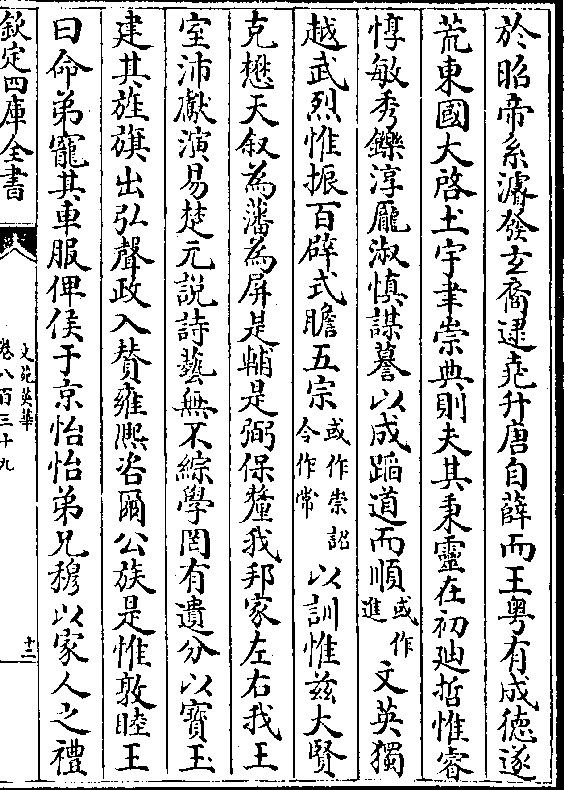 於昭帝系濬發玄裔建堯升唐自薛而王粤有成德遂
荒東國大啓土宇聿崇典則夫其秉靈在初廸哲惟睿
惇敏秀鑠淳龎淑慎謀謩以成蹈道而順或作進文英獨
越武烈惟振百辟式瞻五宗或作崇詔令作常以訓惟兹大賢
克懋天叙為藩為屏是輔是弼保釐我邦家左右我王
室沛獻演易楚元説詩藝無不綜學罔有遺分以寳玉
建其旌旗出弘聲政入賛雍熈咨爾公族是惟敦睦王
曰命弟寵其車服俾侯于京怡怡弟兄穆以家人之禮
欽定四庫全書
文苑英華
卷八百三十九
十二